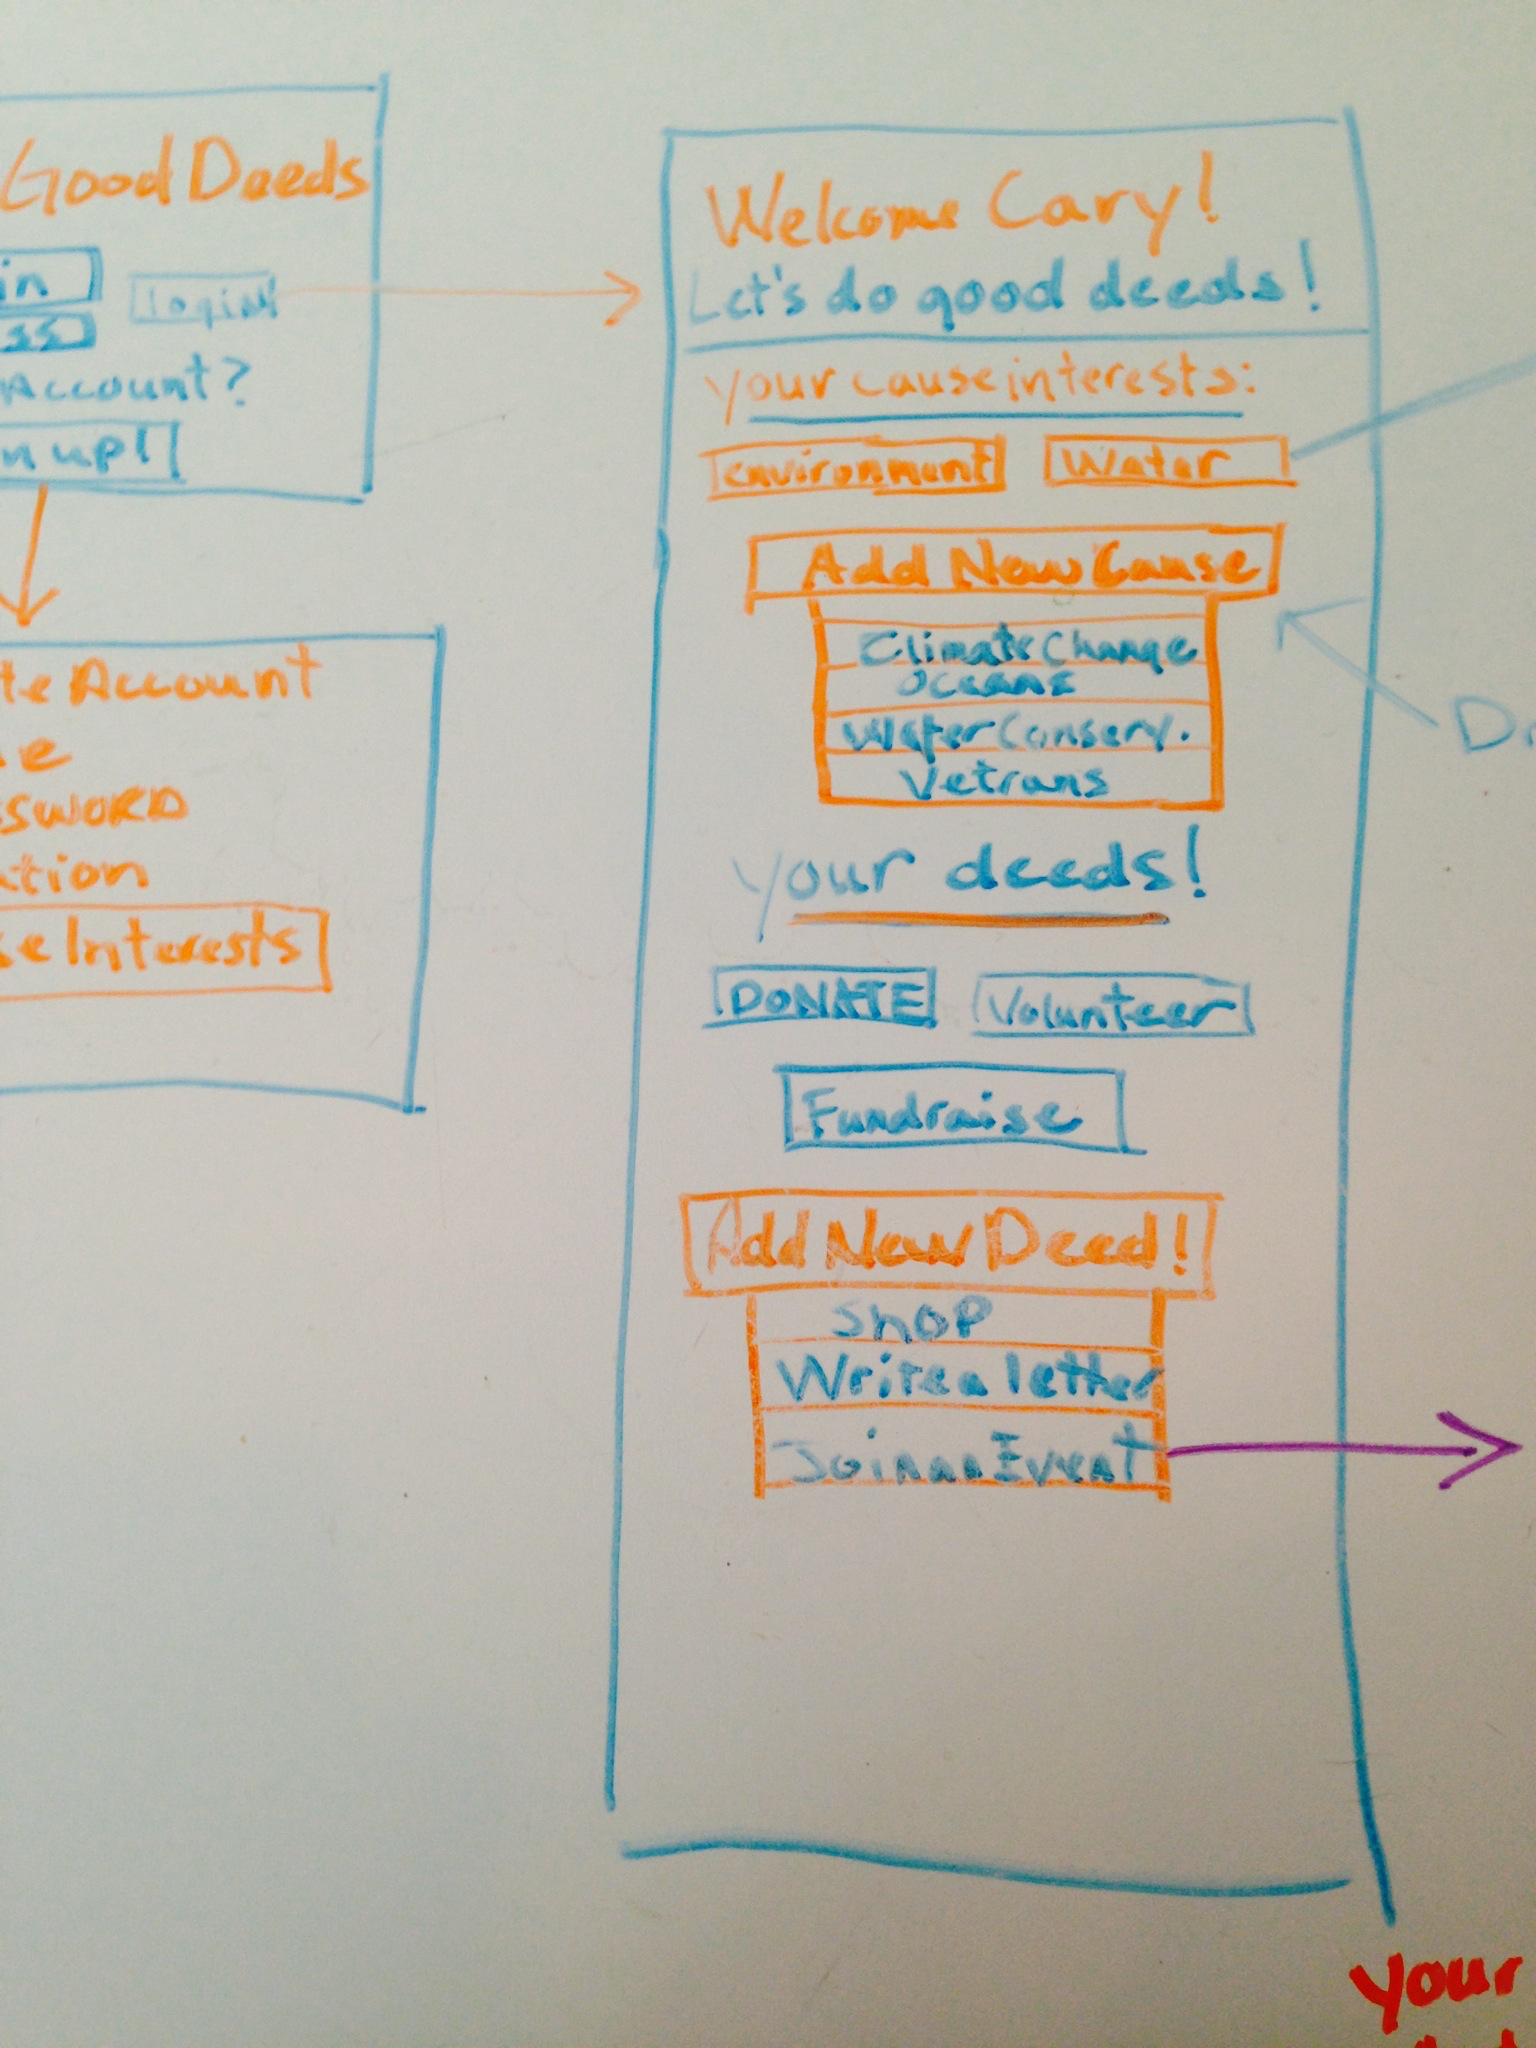 Good Deeds
in
login
ss
Account?
n up!
te Account
e
ssword
ation
se Interests
Welcome Cary!
Let's do good deeds!
your cause interests:
environment
Water
Add New Cause
Climate Change
Oceans
Water Conserv.
Vetrans
your deeds!
DONATE
Volunteer
Fundraise
Add New Deed!
Shop
Write a letter
Join an Event
D
your